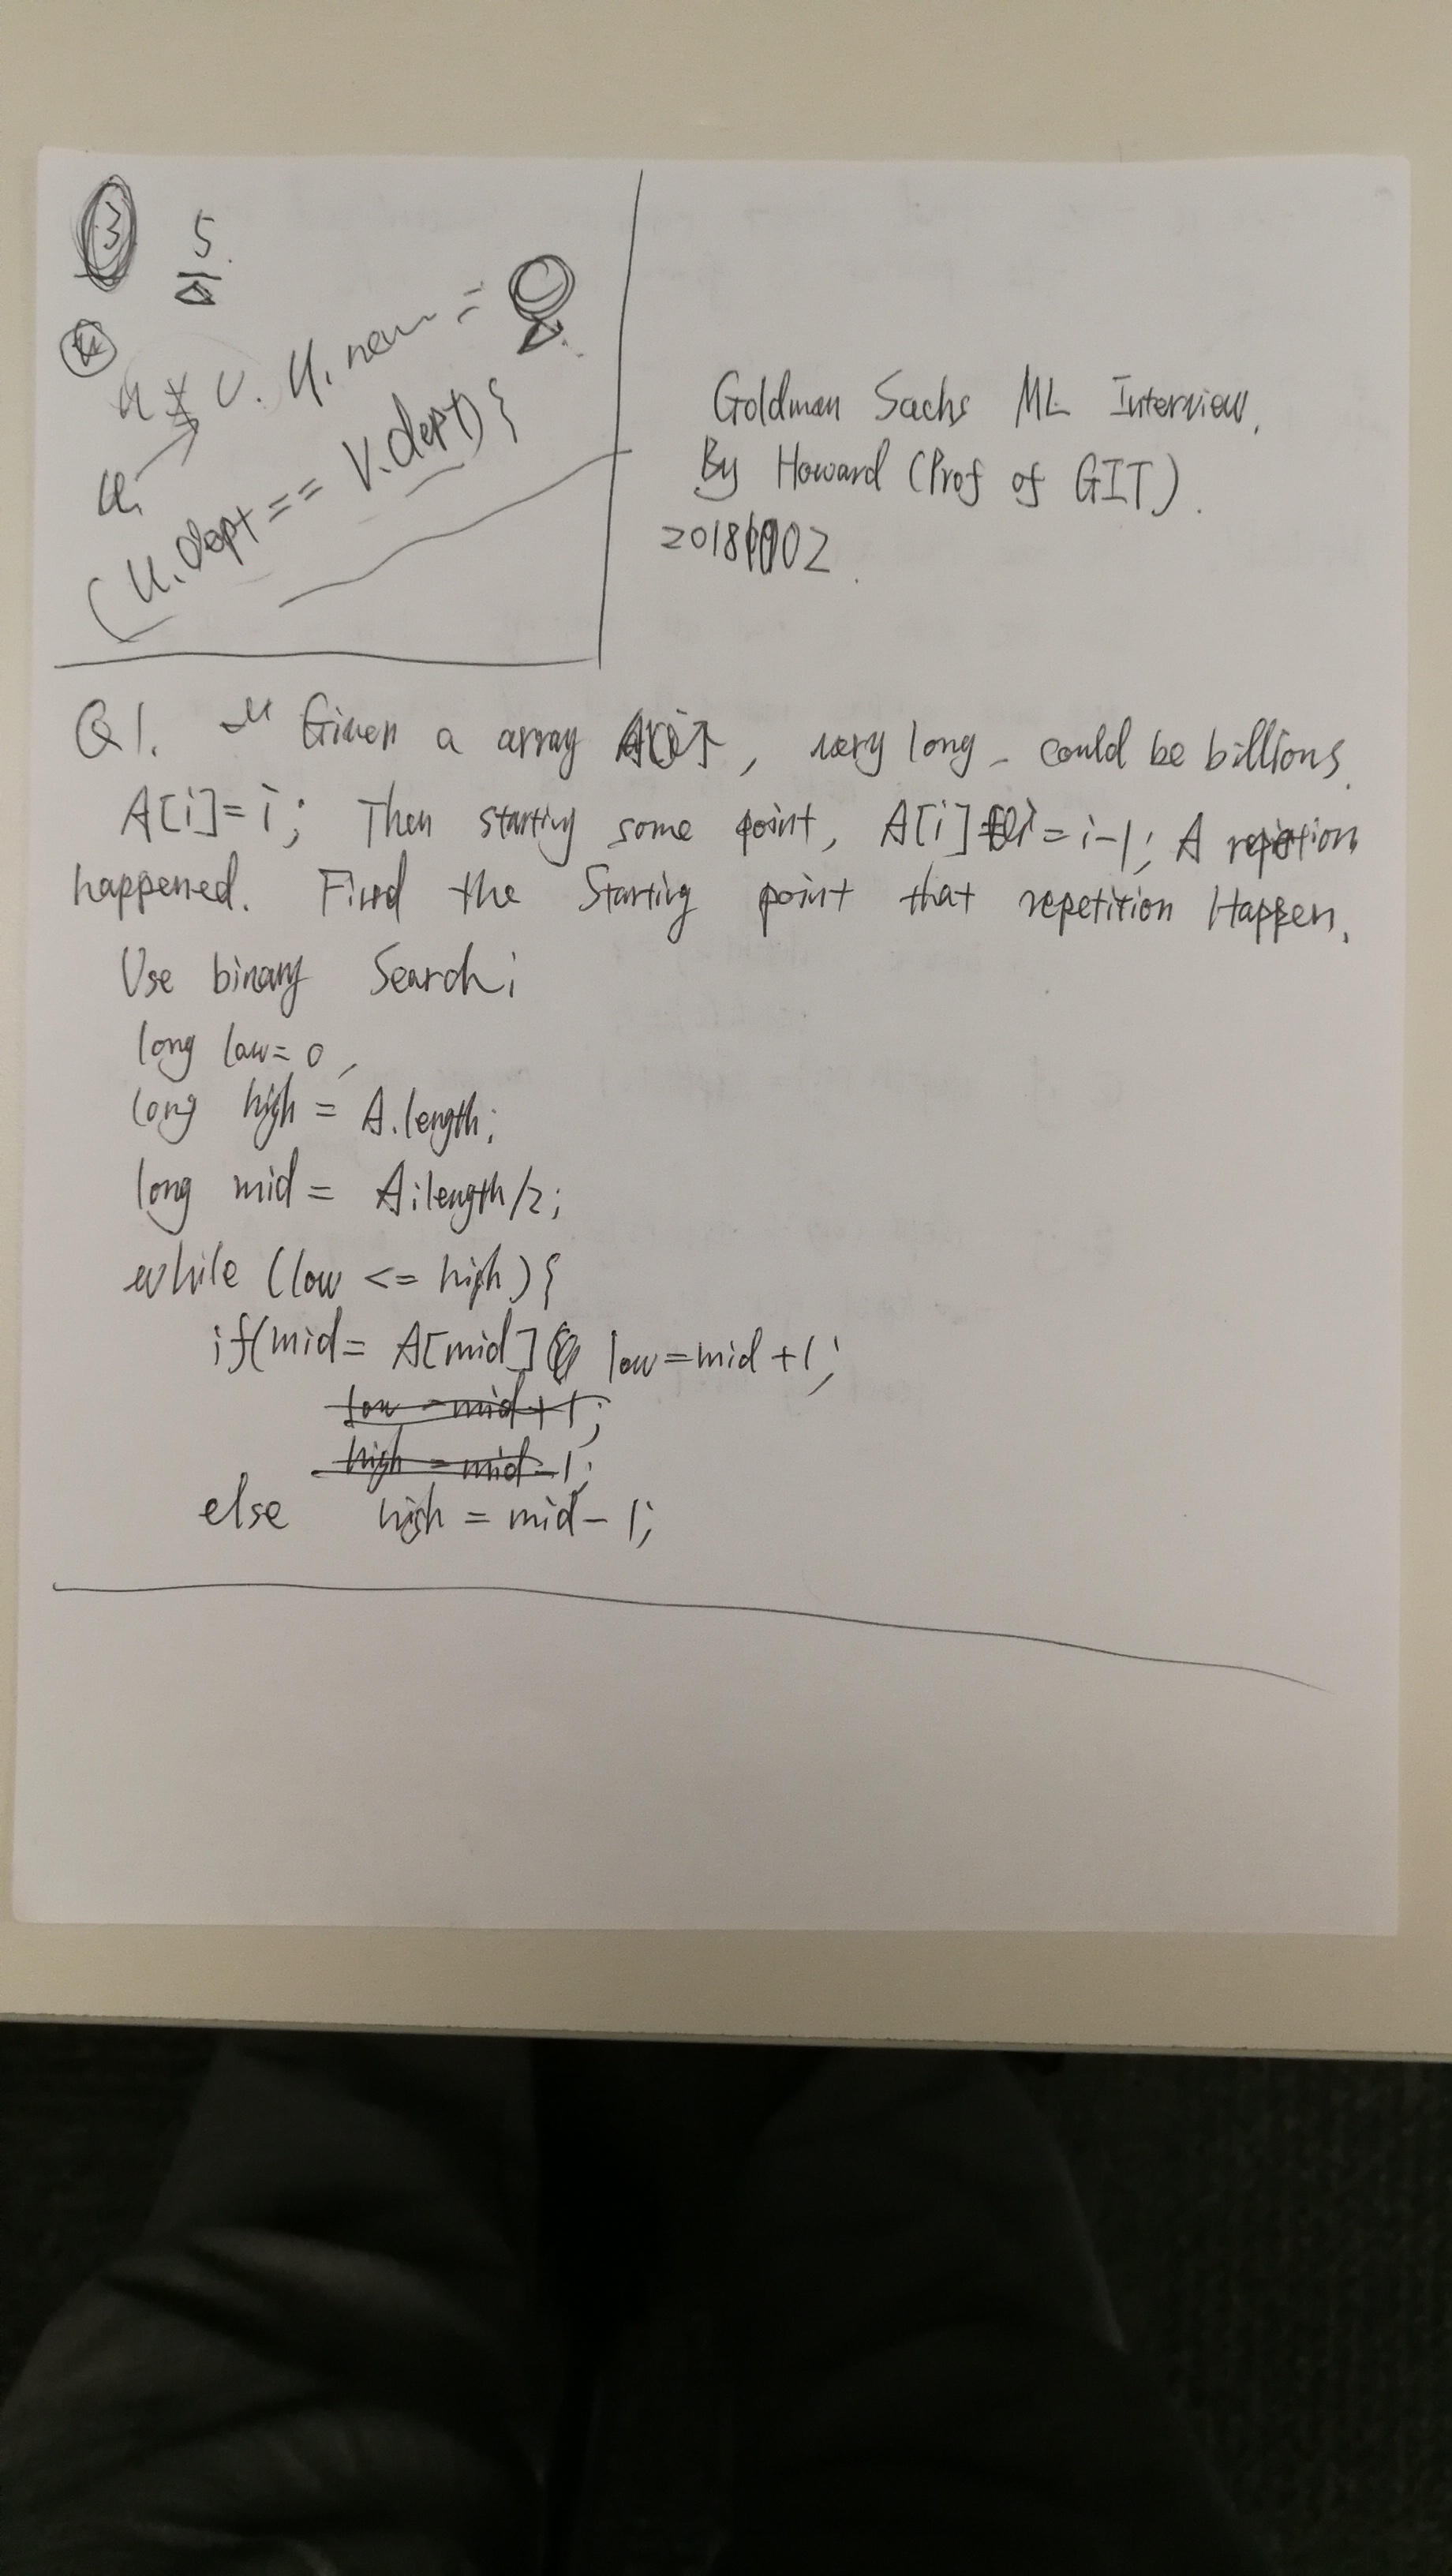 3 5
u v. u. new =
u.
(u.dept == v.dept) {
Goldman Sachs ML Interview.
By Howard (Prof of GIT).
Q1. Given a array , very long - could be billions.
A[i]=i; Then starting some point, A[i] = i-1; A repetion
happened. Find the Starting point that repetition Happen.
Use binary Search;
long law=0,
long high = A.length;
long mid = A.length/2;
while (low <= high) {
if(mid= A[mid] low=mid+1;
low=mid+1;
high=mid-1;
else high = mid-1;